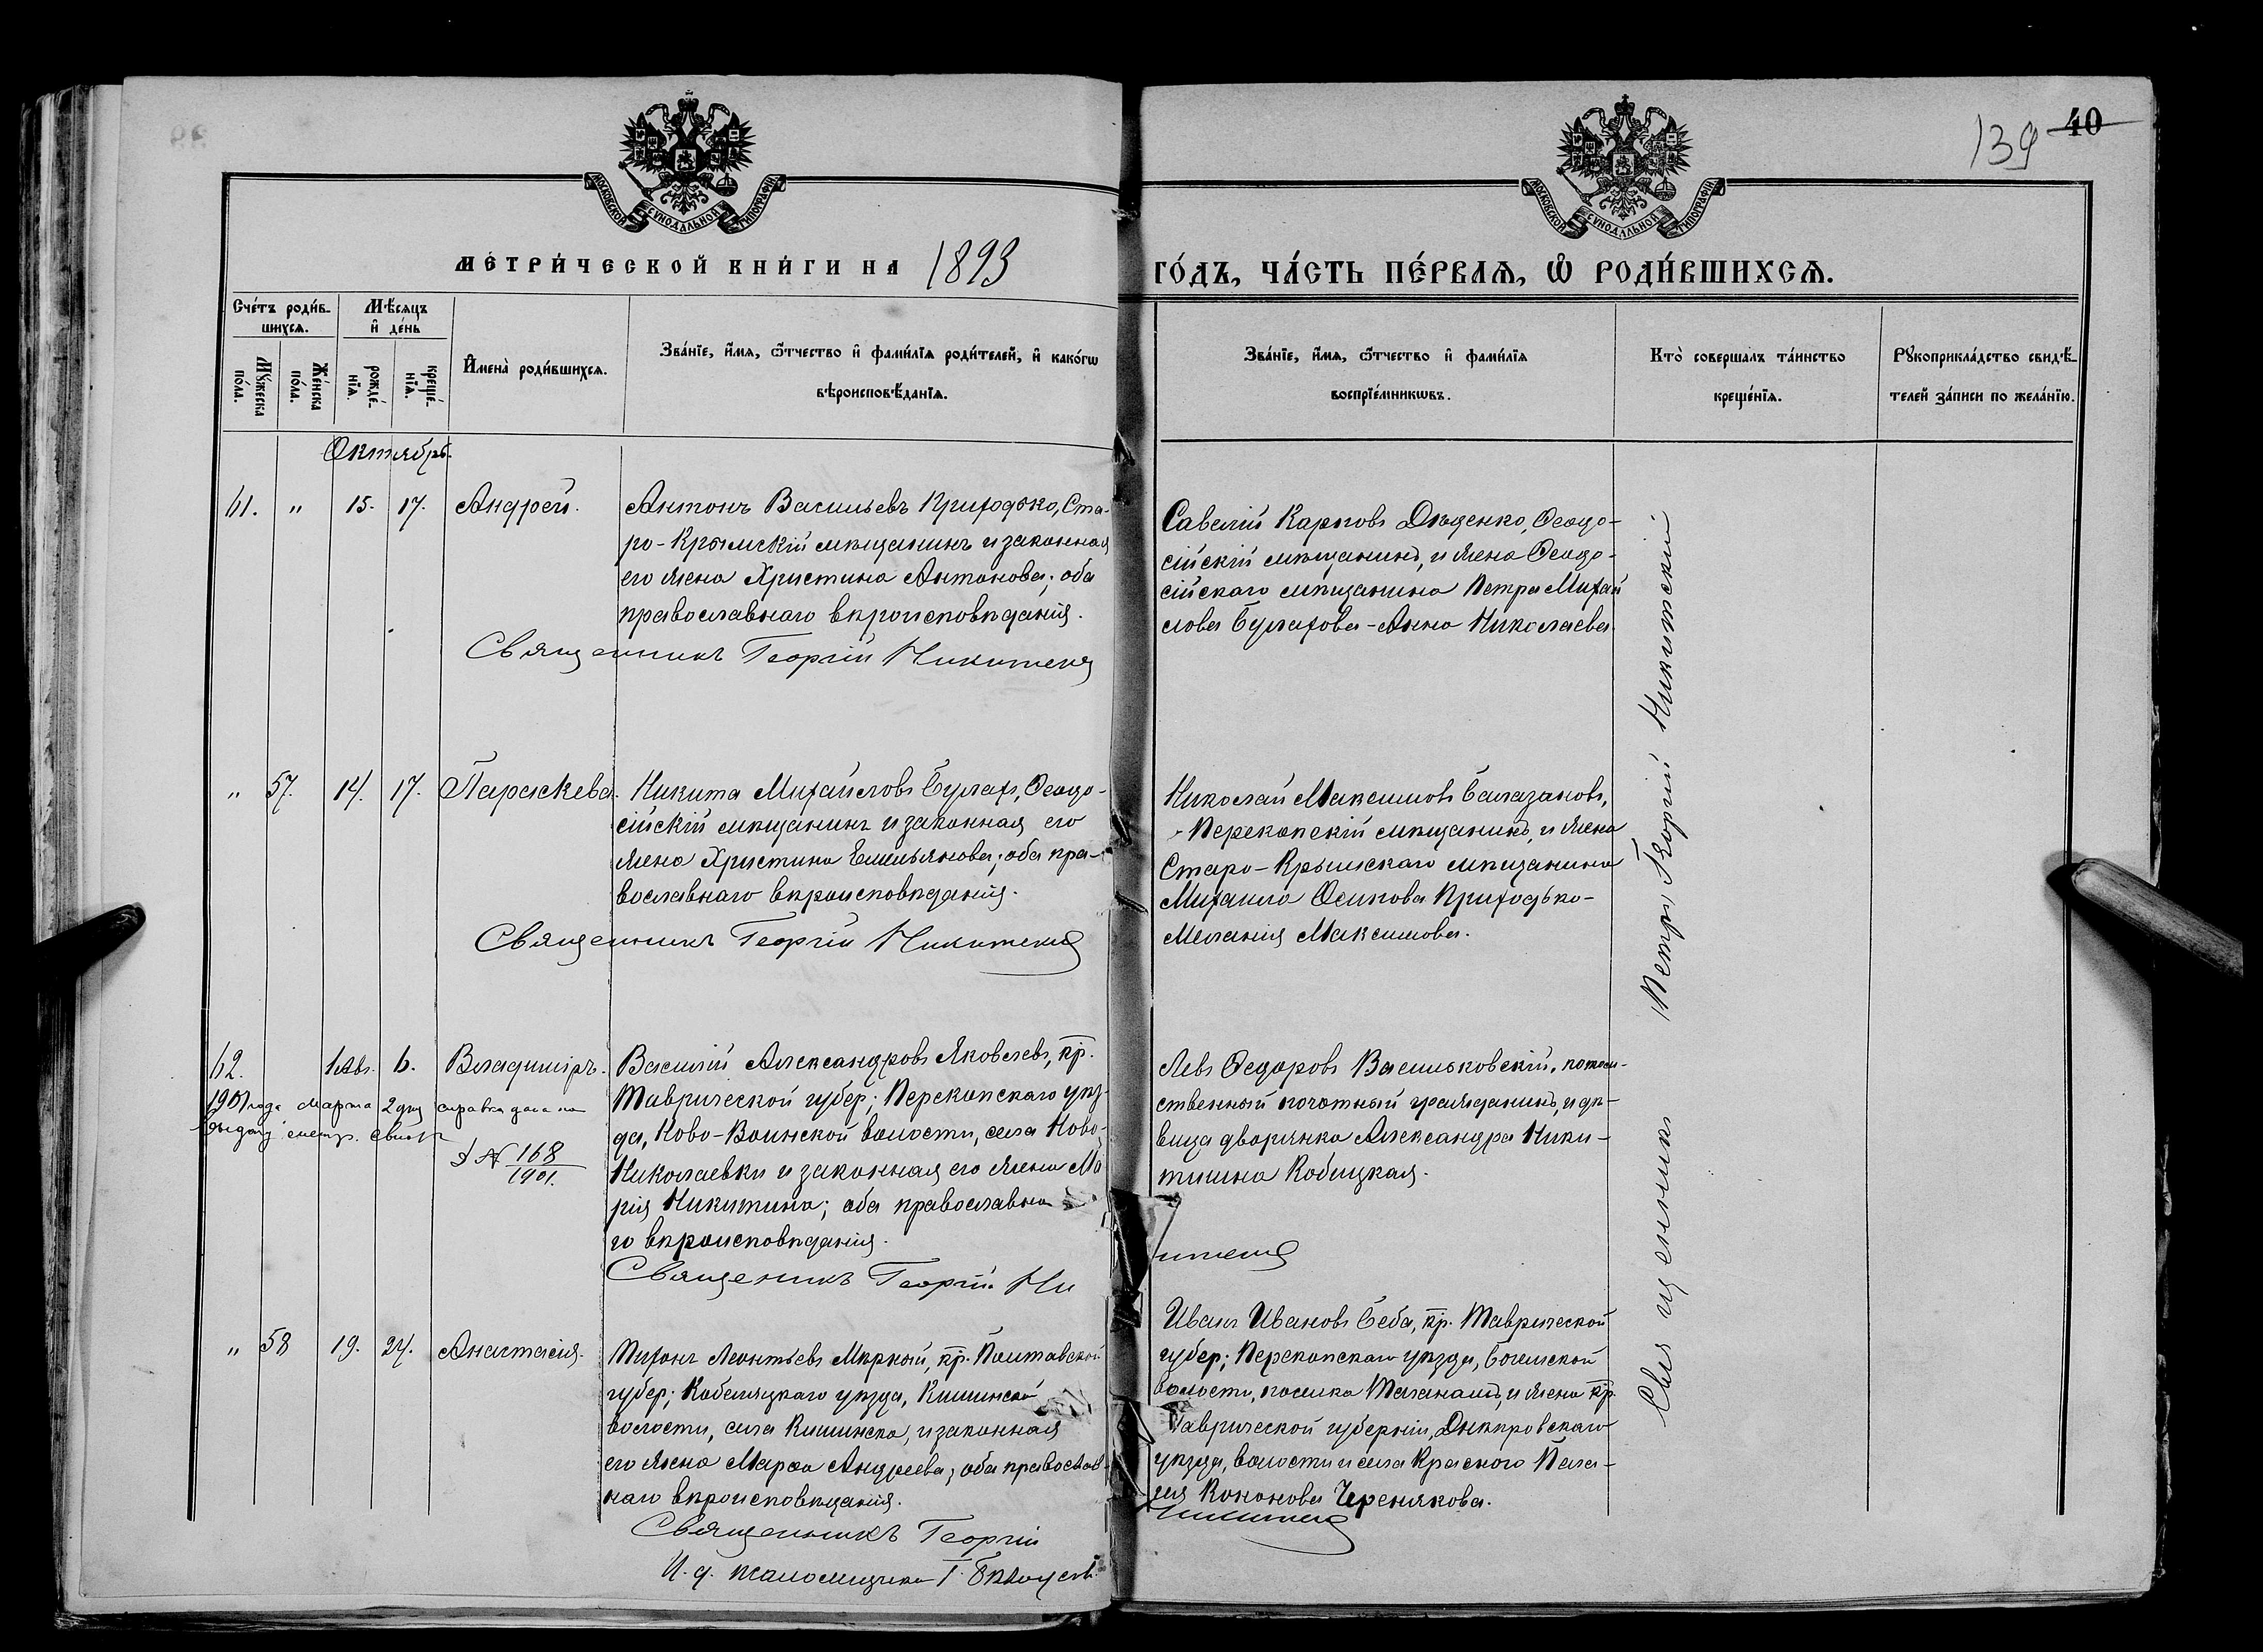 139 40
МОСКОВСКОЙ СѴНОДАЛЬНОЙ ТИПОГРАФІИ
МОСКОВСКОЙ СѴНОДАЛЬНОЙ ТИПОГРАФІИ
МЕ́ТРИ́ЧЕСКОЙ КНИ́ГИ НА 1893 ГО́ДЪ, ЧА́СТЬ ПЕ́РВАѦ, Ѡ҆ РОДИ́ВШИХСѦ.
Сче́тъ роди́в-
шихсѧ.
Мѣ́сѧцъ
и҆ де́нь
Мꙋ́жеска
по́ла.
Же́нска
по́ла.
рожде́-
нїѧ
креще́-
нїѧ.
И҆мена̀ роди́вшихсѧ.
Зва́нїе, и҆́мѧ, ѻ҆́тчество и҆ фами́лїѧ роди́телей, и҆ како́гѡ
вѣроисповѣ́данїѧ.
Зва́нїе, и҆́мѧ, ѻ҆́тчество и҆ фами́лїѧ
воспрїе́мникѡвъ.
Кто̀ соверша́лъ та́инство
креще́нїѧ.
Рꙋкоприкла́дство свидѣ́-
телей за́писи по жела́нїю.
Октябрь.
61. " 15. 17. Андрей.
Антонъ Васильевъ Приходько, Ста-
ро-Крымскій мѣщанинъ и законная
его жена Христина Антонова; оба
православнаго вѣроисповѣданія.
Священникъ Георгій Никитскій
Савелій Карповъ Дяденко, Ѳеодо-
сійскій мѣщанинъ, и жена Ѳеодо-
сійскаго мѣщанина Петра Михай
лова Булахова-Анна Николаева.
" 57. 14. 17. Параскева.
Никита Михайловъ Булахъ, Ѳеодо-
сійскій мѣщанинъ и законная его
жена Христина Емельянова; оба пра-
вославнаго вѣроисповѣданія.
Священникъ Георгій Никитскій
Николай Максимовъ Балазановъ,
Перекопскій мѣщанинъ, и жена
Старо-Крымскаго мѣщанина
Михаила Осипова Приходько-
Меланія Максимова.
62. 1 Авг. 6. Владиміръ.
1901 года марта 2 дня справка дана на
выдачу метр. свид.
№ 168
1901.
Василій Александровъ Яковлевъ, кр.
Таврической губер; Перекопскаго уѣз-
да, Ново-Воинской волости, села Ново-
Николаевки и законная его жена Ма
рія Никитина; оба православна
го вѣроисповѣданія.
Священникъ Георгій Никитскій
Левъ Ѳедоровъ Васильковскій, потом-
ственный почотный гражданинъ, и дѣ-
вица дворянка Александра Ники-
тишна Кобицкая.
" 58 19. 24. Анастасія.
Тихонъ Леонтьевъ Мѣркой, кр. Полтавской
губер; Кобеляцкаго уѣзда, Кишинской
волости, села Кишинска, и законная
его жена Марѳа Андреева; оба православ-
наго вѣроисповѣданія.
Священникъ Георгій Никитскій
И. д. псаломщика Г.
Иванъ Ивановъ Беба, кр. Таврической
губер; Перекопскаго уѣзда, Богемской
волости, поселка Таганашъ, и жена кр.
Таврической губерніи, Днѣпровскаго
уѣзда, волости и села Краснаго Пела-
гея Кононова Черенкова.
Священникъ Петръ Георгій Никитскій